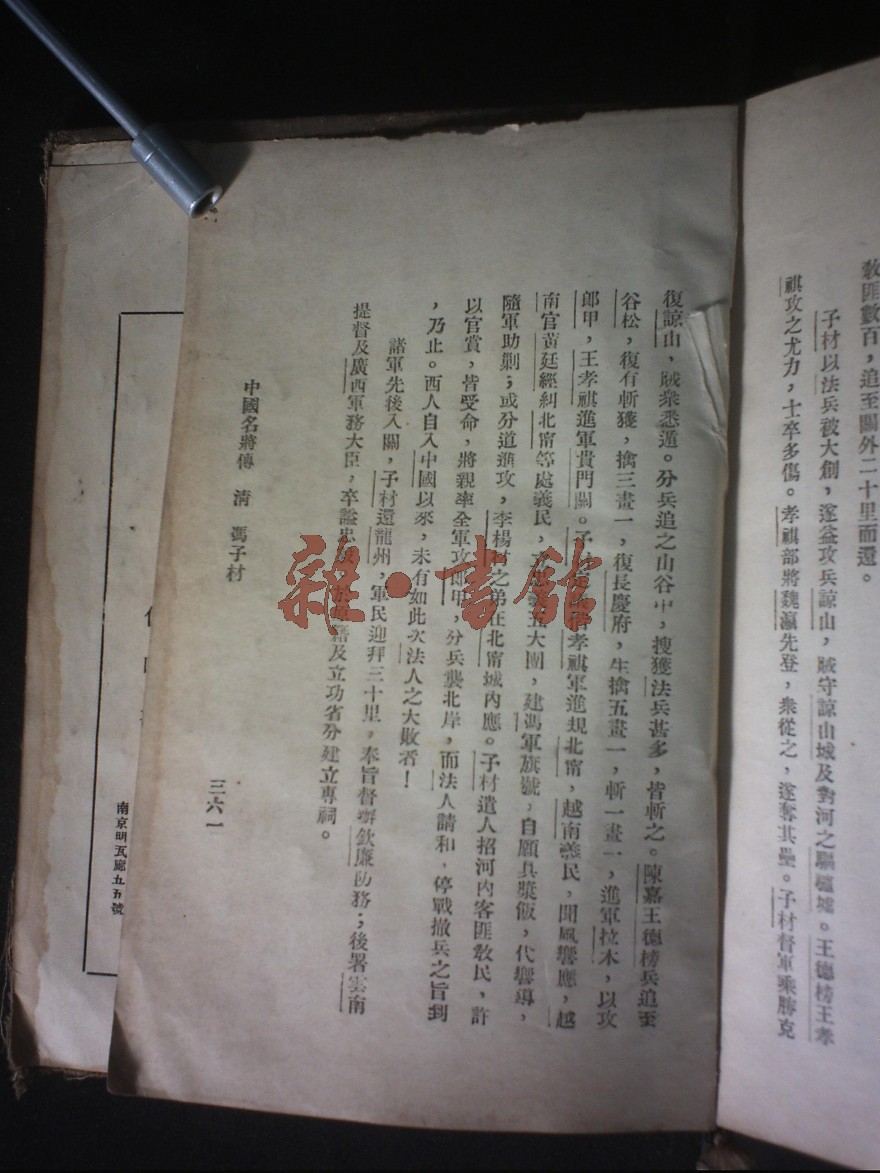 教匪數百，追至關外二十里而還。
子材以法兵被大創，遂益攻兵諒山，賊守諒山城及對河之驅驢墟。王德榜王孝
祺攻之尤力，士卒多傷。孝祺部將魏瀛先登，衆從之，遂奪其壘。子材督軍乘勝克
復諒山，賊衆悉遁。分兵追之山谷中，搜獲法兵甚多，皆斬之。陳嘉王德榜兵追至
谷松，復有斬獲，擒三畫一，復長慶府，生擒五畫一，斬一畫一，進軍拉木，以攻
郎甲，王孝祺進軍貴門關。子孝祺軍進規北甯，越南義民，聞風響應，越
南官黃廷經糾北甯等處義民，五大團，建馮軍旗號，自願具漿飯，代響導，
隨軍助剿；或分道進攻，李楊材之弟在北甯城內應。子材遣人招河內客匪教民，許
以官賞，皆受命，將親率全軍攻郎甲，分兵襲北岸，而法人請和，停戰撤兵之旨到
，乃止。西人自入中國以來，未有如此次法人之大敗者！
諸軍先後入關，子材還龍州，軍民迎拜三十里，奉旨督辦欽廉防務；後署雲南
提督及廣西軍務大臣，卒謚忠籍及立功省分建立專祠。
中國名將傳　清　馮子材
三六一
南京明瓦廊五五號
雜·書館